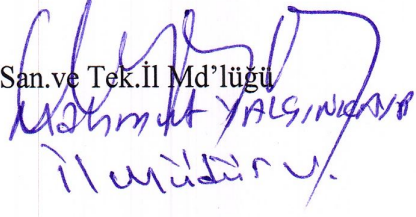 San.ve Tek.İl Md'lüğü
Mahmut YALÇINKAYA
İl Müdür V.